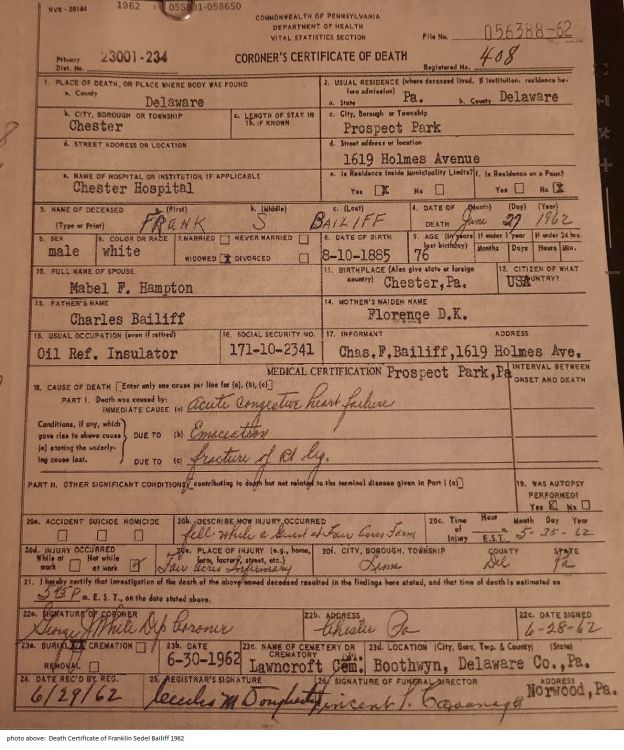 HVS - 20184
1962
055801-058650
COMMONWEALTH OF PENNSYLVANIA
DEPARTMENT OF HEALTH
VITAL STATISTICS SECTION
File No. 056388-62
Primary Dist. No. 23001-234
CORONER'S CERTIFICATE OF DEATH
Registered No. 408
1. PLACE OF DEATH, OR PLACE WHERE BODY WAS FOUND
a. County Delaware
b. CITY, BOROUGH OR TOWNSHIP Chester
c. LENGTH OF STAY IN 1b. IF KNOWN
d. STREET ADDRESS OR LOCATION
e. NAME OF HOSPITAL OR INSTITUTION, IF APPLICABLE
Chester Hospital
2. USUAL RESIDENCE (where deceased lived. If institution: residence before admission)
a. State Pa. b. County Delaware
c. City, Borough or Township
Prospect Park
d. Street address or location
1619 Holmes Avenue
e. Is Residence Inside Municipality Limits?
Yes X No
f. Is Residence on a Farm?
Yes No X
3. NAME OF DECEASED (First) b. (Middle) c. (Last)
(Type or Print) FRANK S BAILIFF
4. DATE OF DEATH (Month) (Day) (Year)
June 27 1962
5. SEX male
6. COLOR OR RACE white
7. MARRIED NEVER MARRIED
WIDOWED X DIVORCED
8. DATE OF BIRTH 8-10-1885
9. AGE (In years last birthday) 76
If under 1 year Months Days
If under 24 hrs. Hours Min.
10. FULL NAME OF SPOUSE
Mabel F. Hampton
11. BIRTHPLACE (Also give state or foreign country)
Chester, Pa.
12. CITIZEN OF WHAT COUNTRY?
USA
13. FATHER'S NAME
Charles Bailiff
14. MOTHER'S MAIDEN NAME
Florence D.K.
15. USUAL OCCUPATION (even if retired)
Oil Ref. Insulator
16. SOCIAL SECURITY NO.
171-10-2341
17. INFORMANT ADDRESS
Chas.F.Bailiff,1619 Holmes Ave.
MEDICAL CERTIFICATION Prospect Park,Pa
INTERVAL BETWEEN ONSET AND DEATH
18. CAUSE OF DEATH [Enter only one cause per line for (a), (b), (c)]
PART I. Death was caused by:
IMMEDIATE CAUSE (a) acute congestive heart failure
Conditions, if any, which gave rise to above cause (a) stating the underlying cause last.
DUE TO (b) Emaceation
DUE TO (c) fracture of Rt
PART II. OTHER SIGNIFICANT CONDITIONS [contributing to death but not related to the terminal disease given in Part I (a)]
19. WAS AUTOPSY PERFORMED?
Yes No
20a. ACCIDENT SUICIDE HOMICIDE
20b. DESCRIBE HOW INJURY OCCURRED
fell while a Guest at Fair Acres Farm
20c. Time of Injury Hour m. E.S.T. Month Day Year
5-25-62
20d. INJURY OCCURRED
While at work Not while at work
20e. PLACE OF INJURY (e.g., home, farm, factory, street, etc.)
Fair Acres Infirmary
20f. CITY, BOROUGH, TOWNSHIP COUNTY STATE
Lima Del Pa
21. I hereby certify that investigation of the death of the above named deceased resulted in the findings here stated, and that time of death is estimated as
m. E. S. T., on the date stated above.
22a. SIGNATURE OF CORONER
George J White Dep Coroner
22b. ADDRESS
Chester Pa
22c. DATE SIGNED
6-28-62
23a. BURIAL XX CREMATION
REMOVAL
23b. DATE
6-30-1962
23c. NAME OF CEMETERY OR CREMATORY
Lawncroft Cem.
23d. LOCATION (City, Boro, Twp. & County) (State)
Boothwyn, Delaware Co.,Pa.
24. DATE REC'D BY REG.
6/29/62
25. REGISTRAR'S SIGNATURE
Cecelia M Dougherty
26. SIGNATURE OF FUNERAL DIRECTOR
Vincent P. Cavanagh
ADDRESS
Norwood, Pa.
photo above: Death Certificate of Franklin Sedel Bailiff 1962